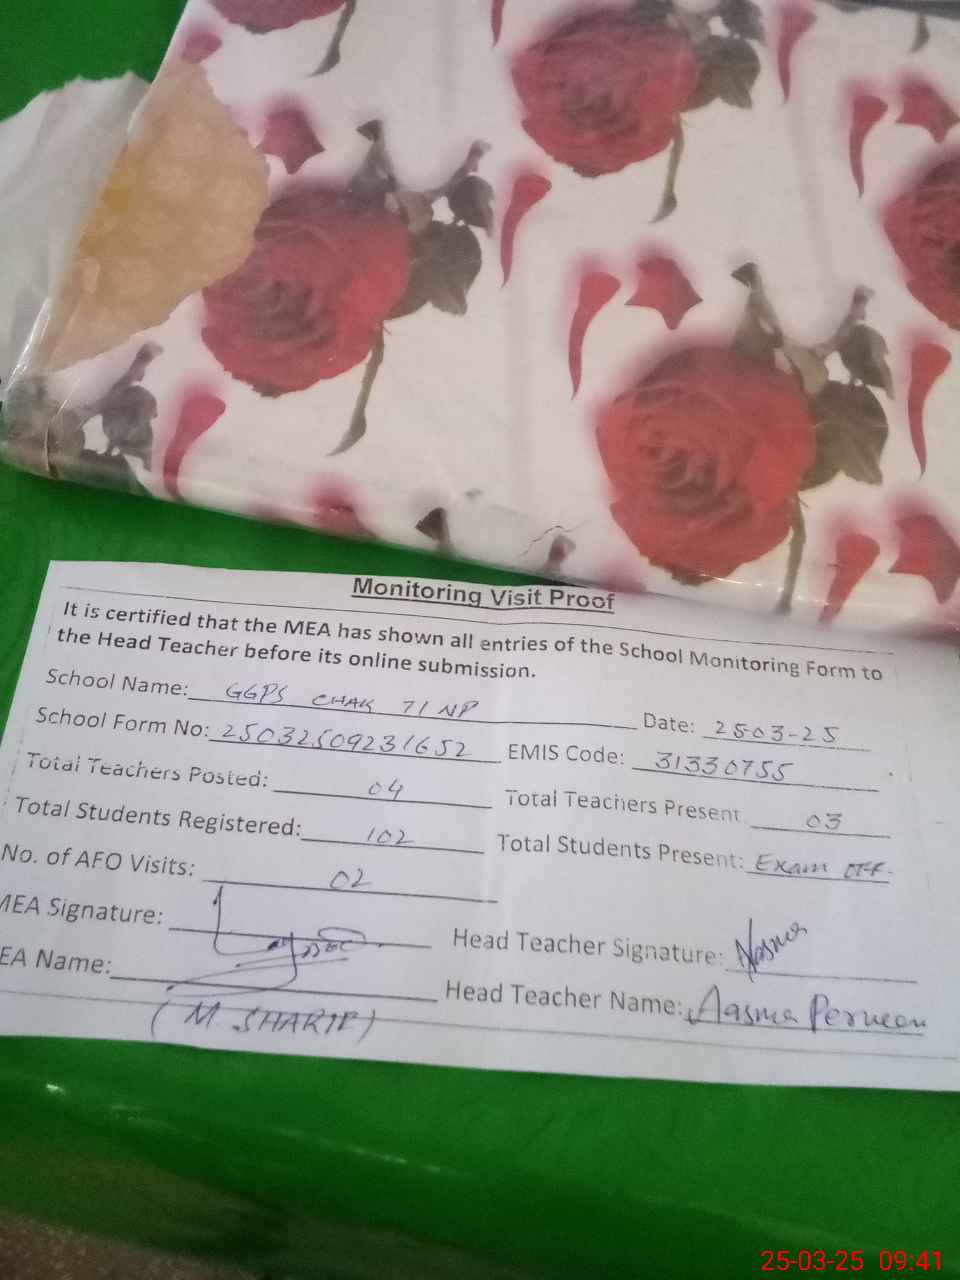 Monitoring Visit Proof
It is certified that the MEA has shown all entries of the School Monitoring Form to
the Head Teacher before its online submission.
School Name: GGPS CHAK 71 NP Date: 25-03-25
School Form No: 25032509231652 EMIS Code: 31330755
Total Teachers Posted: 04 Total Teachers Present 03
Total Students Registered: 102 Total Students Present: Exam OFF.
No. of AFO Visits: 02
MEA Signature: Head Teacher Signature: Aasma
EA Name: Head Teacher Name: Aasma Perveen
(M SHARIF)
25-03-25 09:41